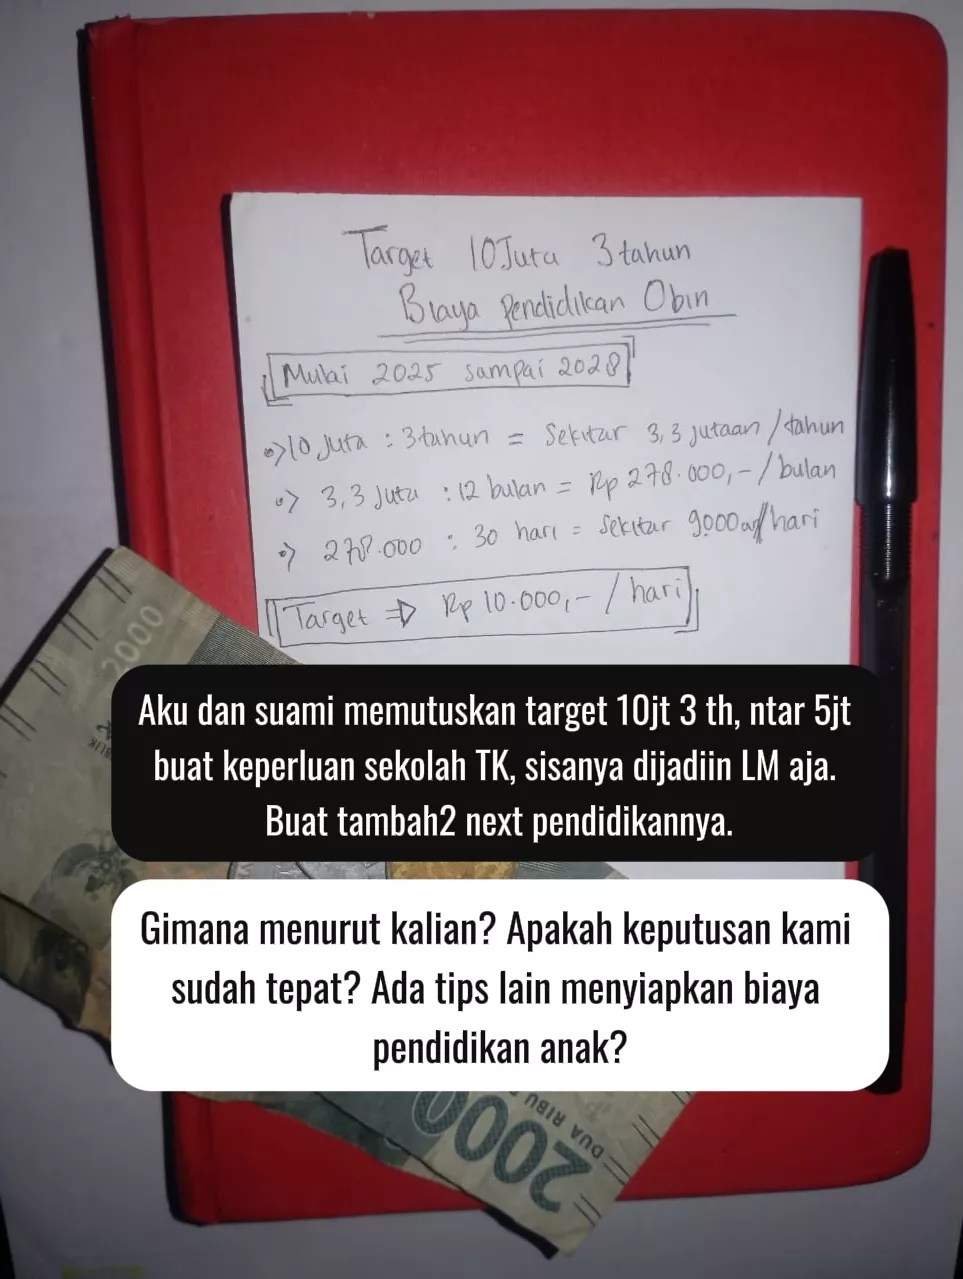 Target 10 Juta 3 tahun
Biaya Pendidikan Obin
Mulai 2025 sampai 2028
10 Juta : 3 tahun = Sekitar 3,3 jutaan / tahun
3,3 Juta : 12 bulan = Rp 278.000,- / bulan
278.000 : 30 hari = Sekitar 9.000an/hari
Target => Rp 10.000,- / hari
2000
Aku dan suami memutuskan target 10jt 3 th, ntar 5jt
buat keperluan sekolah TK, sisanya dijadiin LM aja.
Buat tambah2 next pendidikannya.
Gimana menurut kalian? Apakah keputusan kami
sudah tepat? Ada tips lain menyiapkan biaya
pendidikan anak?
2000
DUA RIBU